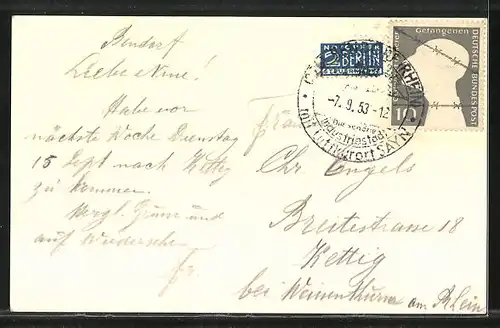 Bendorf
Liebe Anne!
Habe vor
nächste Woche Dienstag
15 Sept nach Kettig
zu kommen.
Herzl. Grüsse und
auf Wiedersehn
Frau
Chr Engels
Breitestrasse 18
Kettig
bei Weissenthurm am Rhein
NOTOPFER
2 BERLIN
STEUERMARKE
RHEIN
-7.9.53-12
Industriestadt
Luftkurort SAYN
Gefangenen
DEUTSCHE BUNDESPOST
10